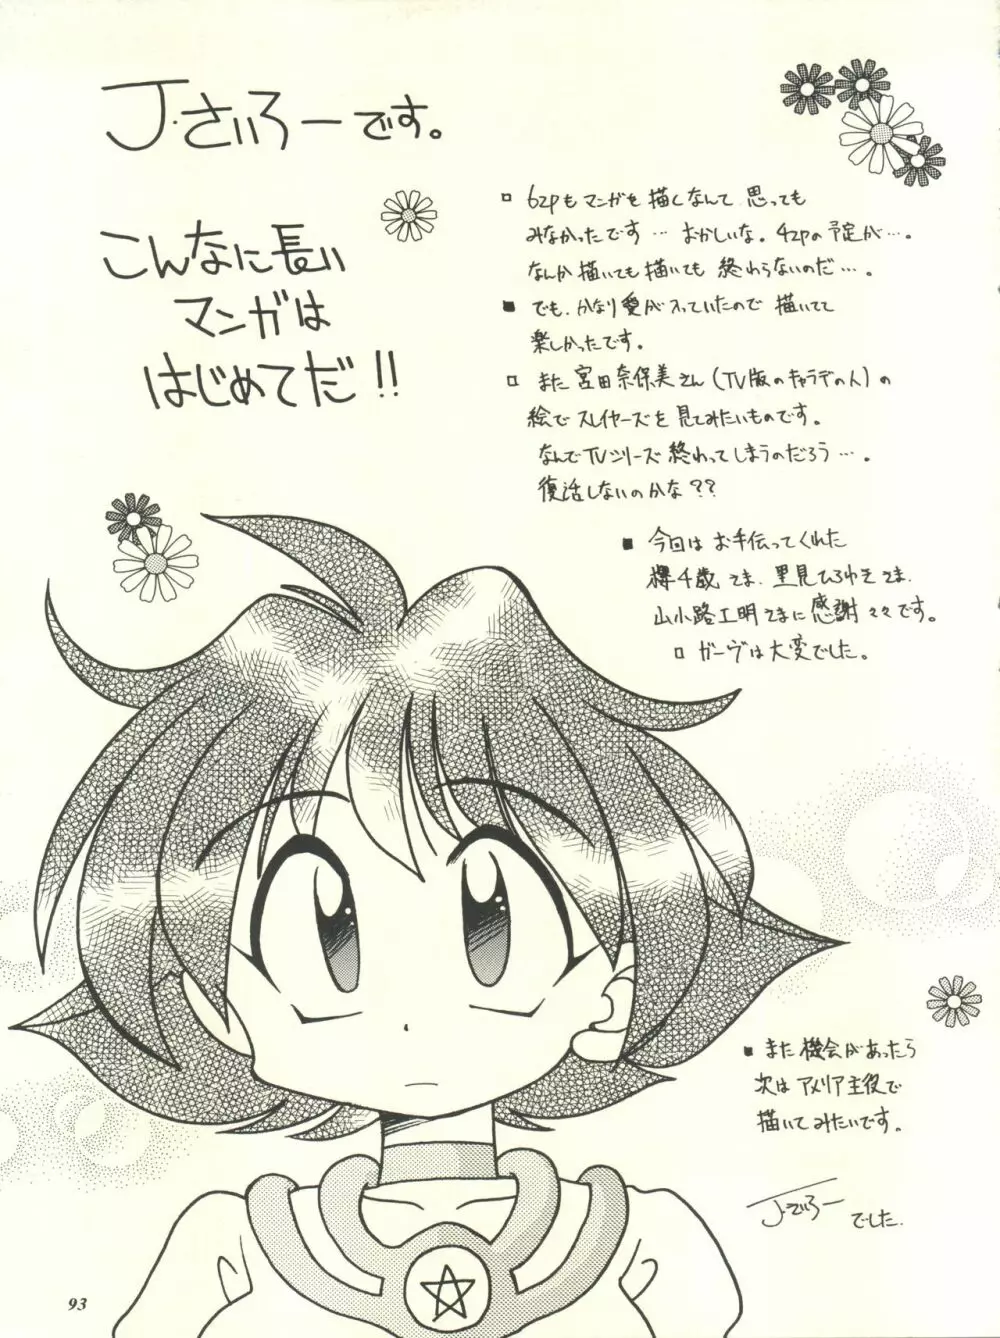 J・さいろーです。
こんなに長い
マンガは
はじめてだ!!
62pもマンガを描くなんて 思っても
みなかったです…おかしいな。42pの予定が…。
なんか描いても描いても 終わらないのだ…。
でも、かなり愛が入っていたので 描いてて
楽しかったです。
また 宮田奈保美さん(TV版のキャラデの人)の
絵で スレイヤーズを 見てみたいものです。
なんでTVシリーズ終わってしまうのだろう…。
復活しないのかな??
今回は お手伝ってくれた
欅千歳さま、里見ひろゆきさま、
山小路工明さまに感謝々々です。
ガーヴは大変でした。
また 機会があったら
次は アメリア主役で
描いてみたいです。
J・さいろー
でした.
93